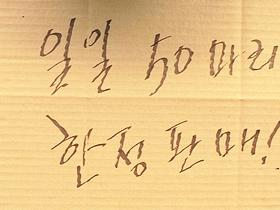 일일 50마리
한정판매!